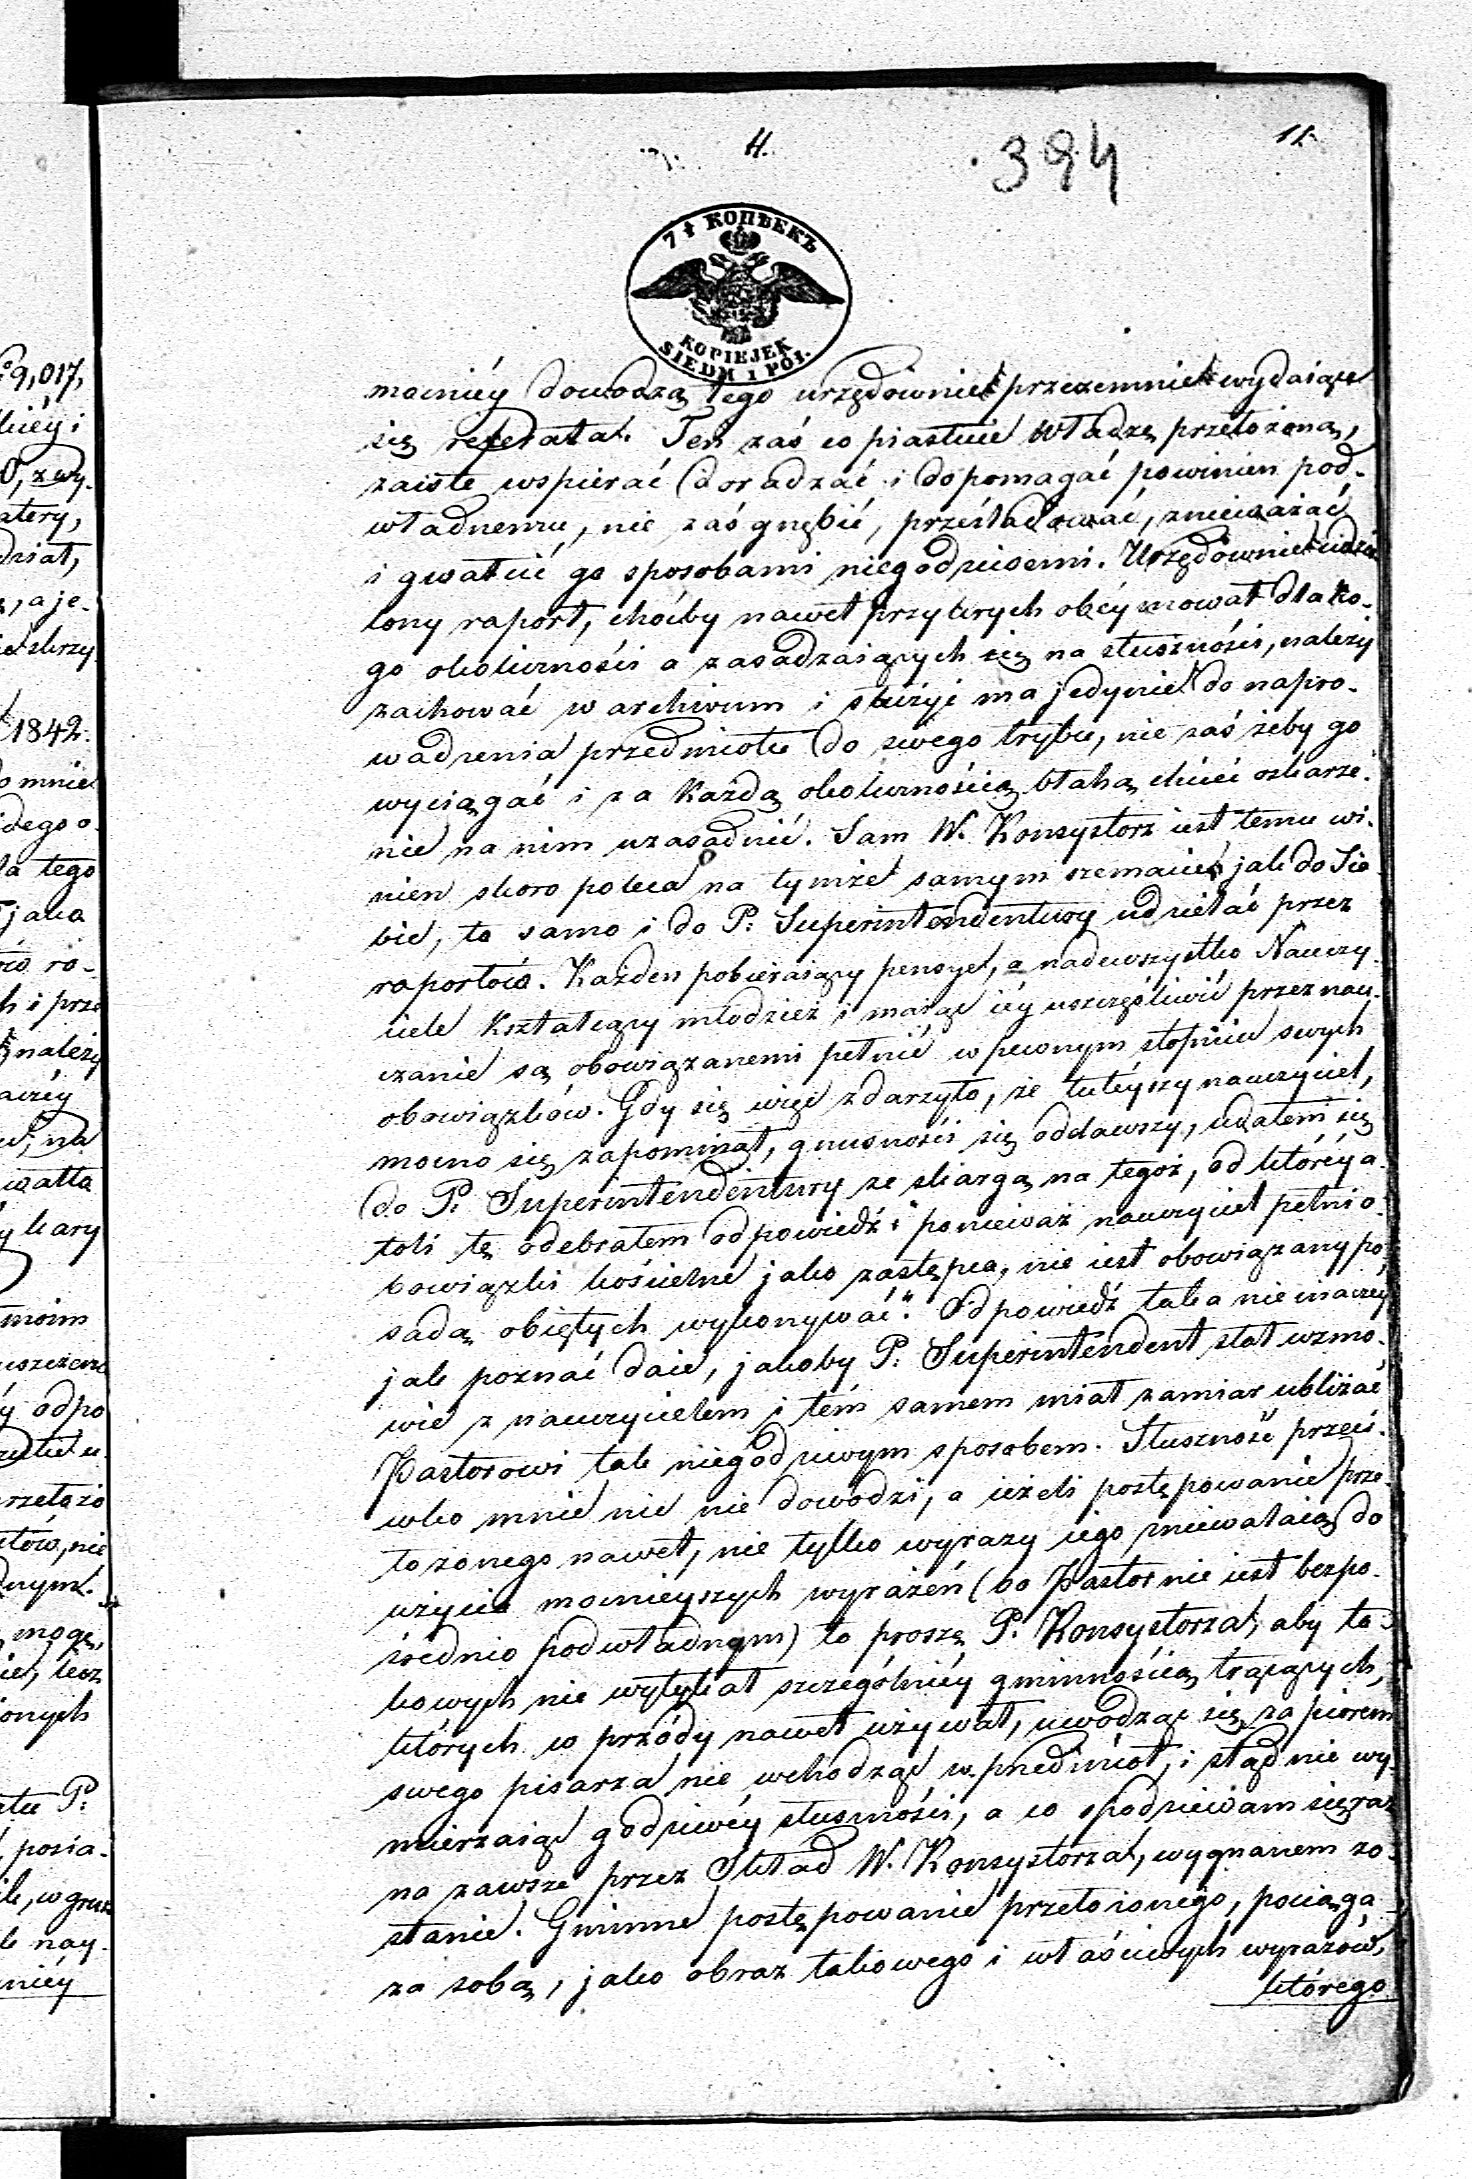 4.
394
11.
7½ КОПѢЕКЪ
KOPIEJEK
SIEDM i PÓŁ.
mocniéy dowodzą tego urzędownie przezemnie wydaiące
się referata. Ten zaś co piastuie władzę przełożoną,
zaiste wspierać doradzać i dopomagać powinien pod-
władnemu, nie zaś gnębić, prześladować, znieważać
i gwałcić go sposobami niegodziwemi. Urzędownie udzie
lony raport, choćby nawet przykrych obéymował dla ko-
go okoliczności a zasadzaiących się na słuszności, należy
zachować w archiwum i służyć ma jedynie do napro-
wadzenia przedmiotu do swego trybu, nie zaś żeby go
wyciągać i za każdą okolicznością błahą chcieć oskarże-
nie na nim uzasadnić. Sam W. Konsystorz iest temu wi-
nien skoro poleca na tymże samym szemacie jak do Sie
bie, to samo i do P: Superintendentury udzielać przez
raportów. Każden pobieraiący pensye, a nadewszystko Nauczy-
ciele kształcący młodzież i mając iéy uszczęśliwić przez nau-
czanie są obowiązanemi pełnić w pewnym stopniu swych
obowiązków. Gdy się więc zdarzyło, że tuteyszy nauczyciel,
mocno się zapominał, gnusności się oddawszy, udałem się
do P: Superintendentury ze skargą na tegoż, od któréy a-
toli tę odebrałem odpowiedź: "ponieważ nauczyciel pełni o-
bowiązki kościelne jako zastępca, nie iest obowiązany po-
sadą obiętych wykonywać." Odpowiedź taka nie inaczéy
jak poznać daie, jakoby P: Superintendent stał w zmo-
wie z nauczycielem i tém samem miał zamiar ubliżać
Pastorowi tak niegodziwym sposobem. Słuszność przeci-
wko mnie nie dowodzi, a ieżeli postępowanie prze-
łożonego nawet, nie tylko wyrazy iego zniewalaią do
użycia mocniéyszych wyrażeń (bo Pastor nie iest bezpo-
średnio podwładnym) to proszę P. Konsystorza, aby ta-
kowych nie wytykał szczególniéy gminnością trącących,
których w przódy nawet używał, uwodząc się za piórem
swego pisarza nie wchodząc w przedmiot, i stąd nie wy-
mierzaiąc godziwéy słuszności, a co spodziewam się raz
na zawsze przez Skład W. Konsystorza, wygnanem zo-
stanie. Gminne postępowanie przełożonego, pociąga
za sobą, jako obraz takowego i właściwych wyrazów,
którego
9,017,
1842.
do mnie
tego
jako
i prze
należy
na
kary
moim
odpo
nie
mogę,
lecz
P:
posia-
nay-
niéy